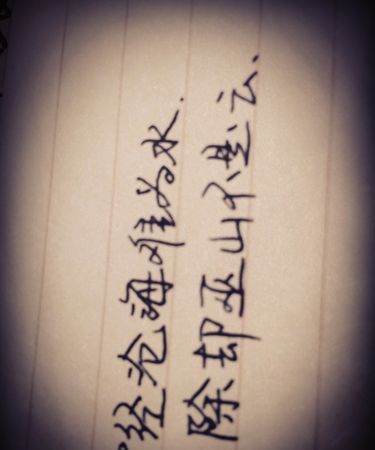 经沧海难为水.
除却巫山不是云.